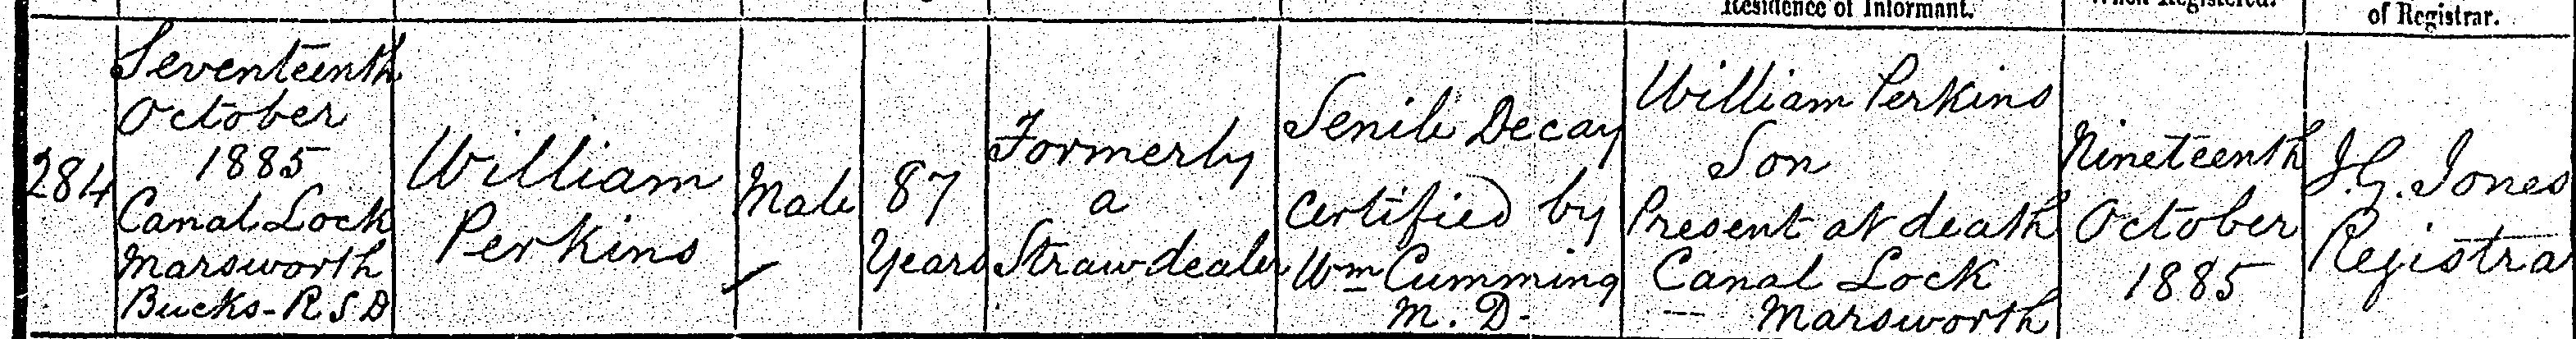 Residence of Informant.
When Registered.
of Registrar.
284
Seventeenth
October
1885
Canal Lock
Marsworth
Bucks - R S D
William
Perkins
Male
87
Years
Formerly
a
Straw dealer
Senile Decay
Certified by
Wm Cumming
M. D.
William Perkins
Son
Present at death
Canal Lock
Marsworth
Nineteenth
October
1885
J. G. Jones
Registrar